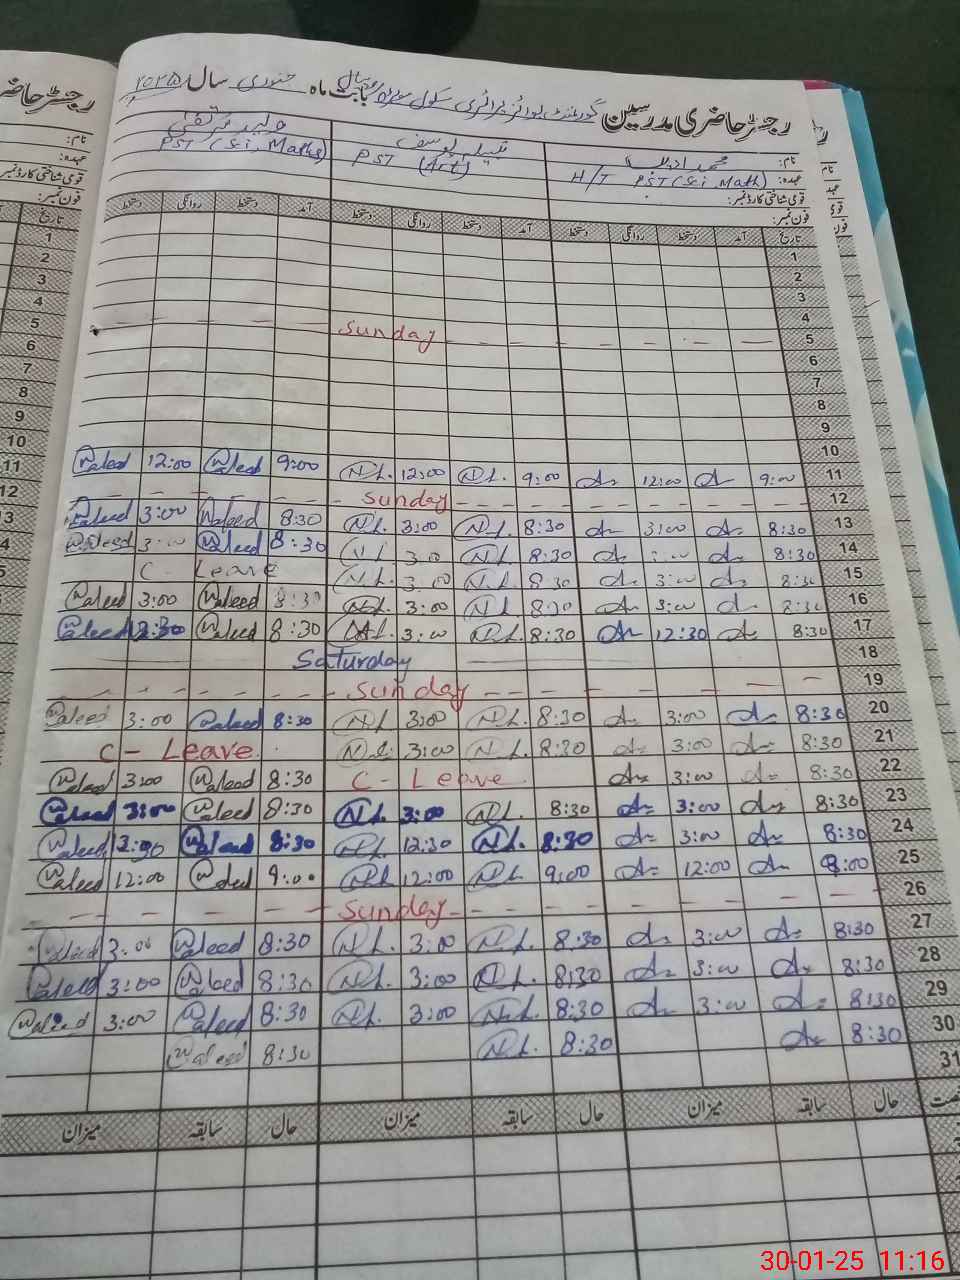 رجسٹر حاضری مدرسین گورنمنٹ بوائز پرائمری سکول بابت ماہ جنوری سال ۲۰۲۵
نام: محمد
نبیلہ یوسف
ولید مرتضیٰ
عہدہ: H/T PST (Sci, Math)
PST (Art)
PST (Sci, Maths)
قومی شناختی کارڈ نمبر:
فون نمبر:
تاریخ آمد دستخط روانگی دستخط آمد دستخط روانگی دستخط آمد دستخط روانگی دستخط
1
2
3
4
5 Sunday
6
7
8
9
10
Waleed 12:00 Waleed 9:00 N.L. 12:00 N.L. 9:00 12:00 9:00 11
Sunday 12
Waleed 3:00 Waleed 8:30 N.L. 3:00 N.L. 8:30 3:00 8:30 13
Waleed 3:00 Waleed 8:30 N.L. 3:00 N.L. 8:30 8:30 14
C - Leave N.L. 3:00 N.L. 8:30 3:00 8:30 15
Waleed 3:00 Waleed 8:30 N.L. 3:00 N.L. 8:30 3:00 8:30 16
Waleed 12:30 Waleed 8:30 N.L. 3:00 N.L. 8:30 12:30 8:30 17
Saturday 18
Sunday 19
Waleed 3:00 Waleed 8:30 N.L. 3:00 N.L. 8:30 3:00 8:30 20
C - Leave N.L. 3:00 N.L. 8:30 3:00 8:30 21
Waleed 3:00 Waleed 8:30 C - Leave 3:00 8:30 22
Waleed 3:00 Waleed 8:30 N.L. 3:00 N.L. 8:30 3:00 8:30 23
Waleed Waleed 8:30 N.L. 12:30 N.L. 8:30 3:00 8:30 24
Waleed 12:00 Waleed 9:00 N.L. 12:00 N.L. 9:00 12:00 9:00 25
Sunday 26
Waleed 3:00 Waleed 8:30 N.L. 3:00 N.L. 8:30 3:00 8:30 27
Waleed 3:00 Waleed 8:30 N.L. 3:00 N.L. 8:30 3:00 8:30 28
Waleed 3:00 Waleed 8:30 N.L. 3:00 N.L. 8:30 3:00 8:30 29
Waleed 8:30 N.L. 8:30 8:30 30
31
حال سابقہ میزان حال سابقہ میزان حال سابقہ میزان
30-01-25 11:16